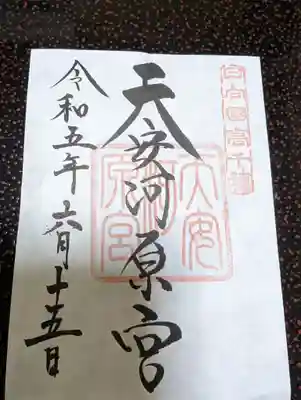 日向国高千穂
天安河原宮
天安
河
原宮
令和五年六月十五日